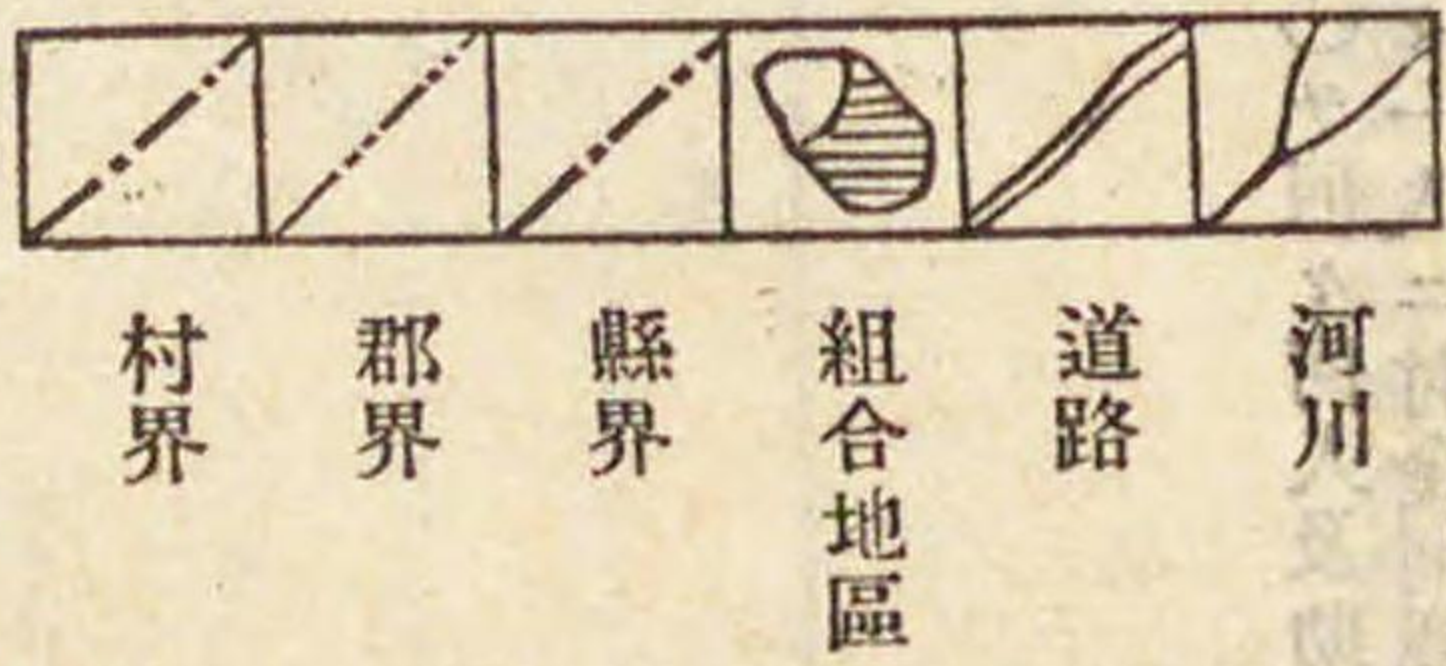 河川
道路
組合地區
縣界
郡界
村界